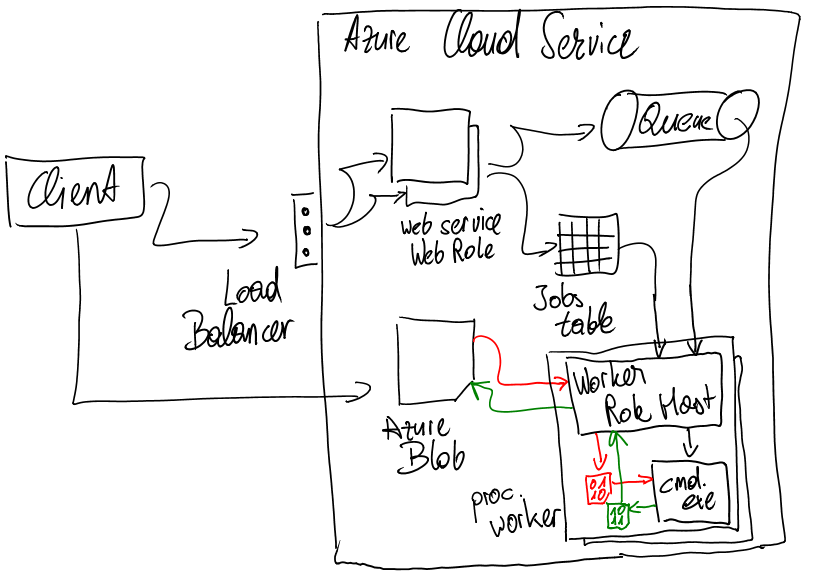 Azure Cloud Service
Client
Load
Balancer
web service
Web Role
Queue
Jobs
table
Azure
Blob
Worker
Role Host
proc.
worker
01
10
10
11
cmd.
exe